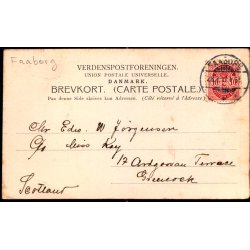 Faaborg
VERDENSPOSTFORENINGEN.
UNION POSTALE UNIVERSELLE.
DANMARK.
BREVKORT. (CARTE POSTALE.)
Paa denne Side skrives kun Adressen. (Côté réservé à l'Adresse.)
Mr Edw. W Jörgensen
C/o Miss Key
17 Ardgowan Terrace
Greenock
Scotland